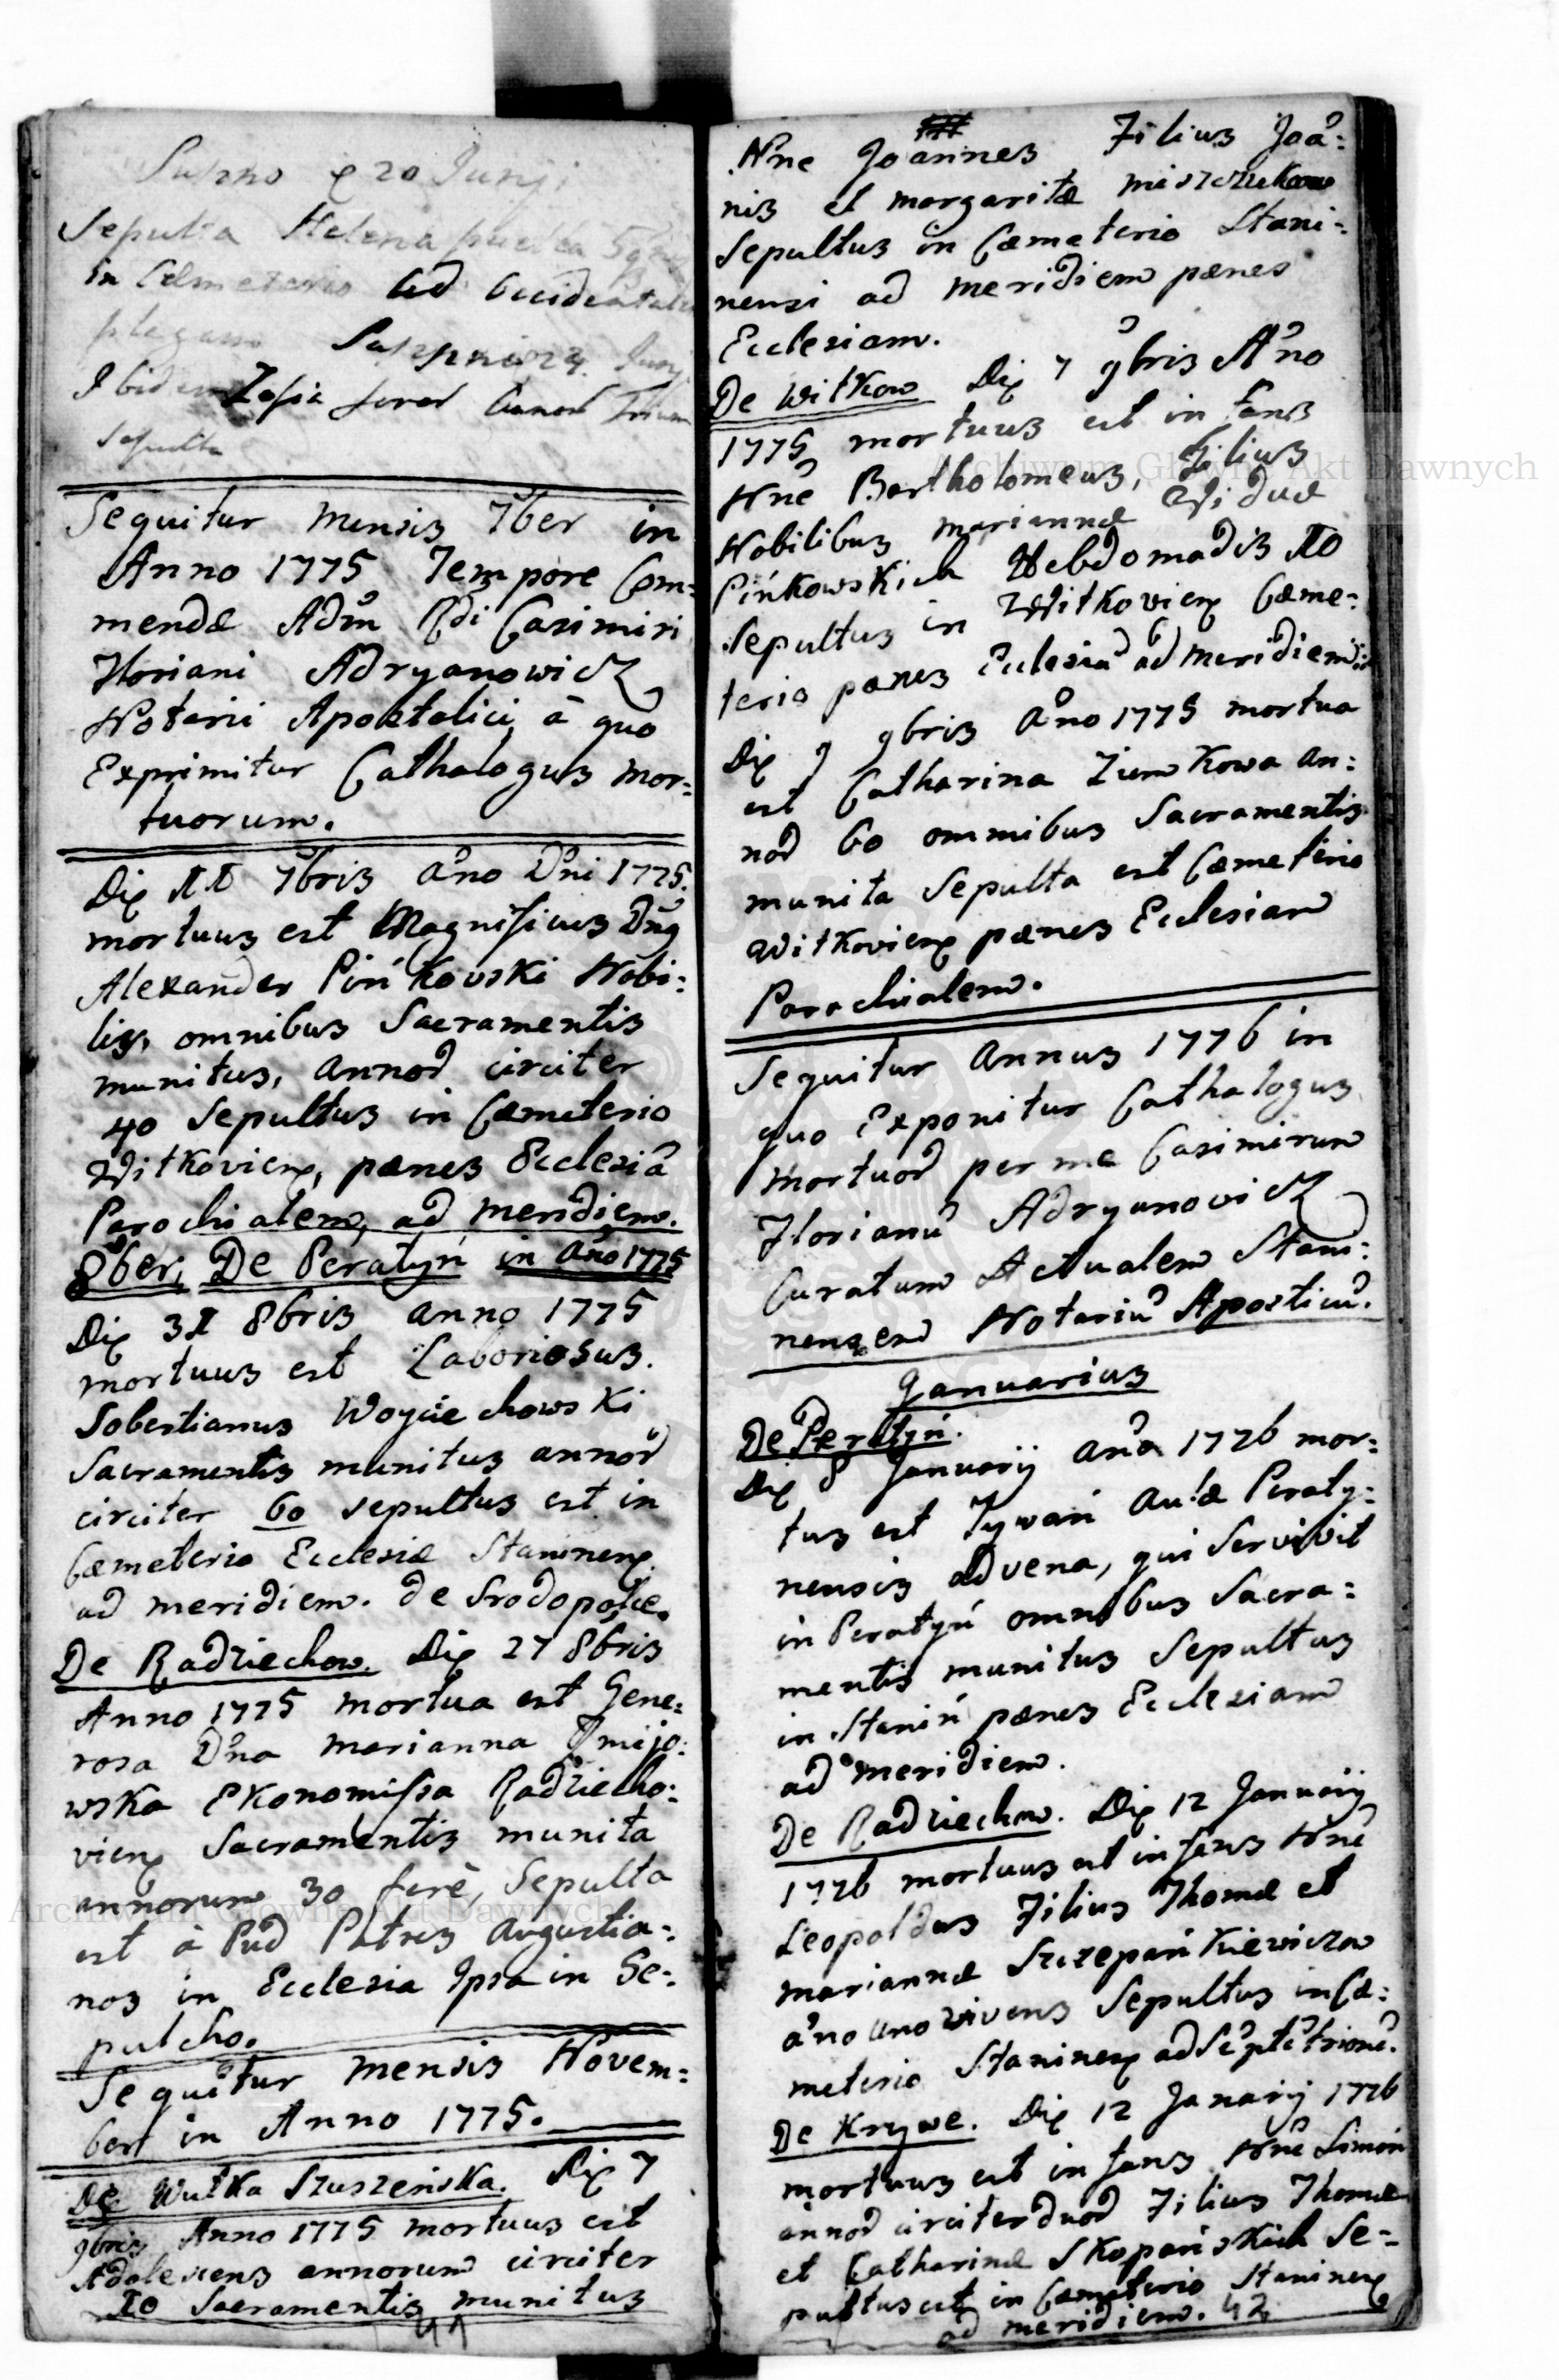 20 Junij
Sepulta Helena
in Cæmeterio ad Occidentalem
plagam
Ibidem Zofia
sepulta
Sequitur Mensis 7ber in
Anno 1775 Tempore Com=
mendæ Adm̃ Rdi Casimiri
Floriani Adryanowicz
Notarii Apostolici, à quo
Exprimitur Cathalogus mor=
tuorum.
Die 11 7bris Año Dñi 1775.
mortuus est Magnificus Dñg
Alexander Pińkowski Nobi=
lis, omnibus Sacramentis
munitus, annoɖ circiter
40 Sepultus in Cæmeterio
Witkovieng, pænes Ecclesiã
Parochialem, ad meridiem.
8ber, De Peratyń in Año 1775
Die 31 8bris anno 1775
mortuus est Laboriosus.
Sobestianus Woyciechowski
Sacramentis munitus annoɖ
circiter 60 sepultus est in
Cæmeterio Ecclesiæ Stanineng
ad meridiem. de Srodopolce.
De Radziechow. Die 27 8bris
Anno 1775 mortua est Gene=
rosa Dña Marianna
wska Ekonomissa Radziecho=
vieng Sacramentis munita
annorum 30 ferè, Sepulta
est à Pud Patres Augustia=
nos in Ecclesia Ipsa in Se=
pulcho.
Sequitur mensis Novem=
ber in Anno 1775.
De Wulka Szuszeńska. Die 7
9bris Anno 1775 mortuus est
Adolescens annorum circiter
10 Sacramentis munitus
41
Nñe Joannes Filius Joã=
nis et Margaritæ
Sepultus in Cæmeterio Stani=
nensi ad meridiem pænes
Ecclesiam.
De Witkow Die 7 9bris Año
1775 mortuus est infans
Nñe Bartholomeus, Filius
Nobilibus Mariannæ Viduæ
Pińkowskich Hebdomadis 10
Sepultus in Witkovieng Cæme=
terio pænes Ecclesiã ad meridiem
Die 9 9bris Año 1775 mortua
est Catharina Ziemkowa an=
noɖ 60 omnibus Sacramentis
munita Sepulta est Cæmeterio
Witkovieng pænes Ecclesiam
Parochialem.
Sequitur Annus 1776 in
quo Exponitur Cathalogus
mortuoɖ per me Casimirum
Florianũ Adryanowicz
Curatum Actualem Stani=
nensem Notariũ Aposticũ.
Januarius
De Peratyń.
Die 8 Januarij Año 1776 mor=
tus est Iywań Aulæ Peraty=
nensis advena, qui Servivit
in Peratyń omnibus Sacra=
mentis munitus Sepultus
in Stanin pænes Ecclesiam
ad meridiem.
De Radziechow. Die 12 Januarij
1776 mortuus est infans Nñe
Leopoldus Filius Thomæ et
Mariannæ Szczepańkiewiczow
año uno vivens Sepultus in Cæ=
meterio Stanineng ad Septẽtrionẽ.
De Krzywe. Die 12 Januarij 1776
mortuus est infans Nñe Simon
annoɖ circiter duoɖ Filius Thomæ
et Catharinæ Skopańskich Se=
pultus est in Cæmeterio Stanineng
ad meridiem. 42
Archiwum Główne Akt Dawnych
Archiwum Główne Akt Dawnych